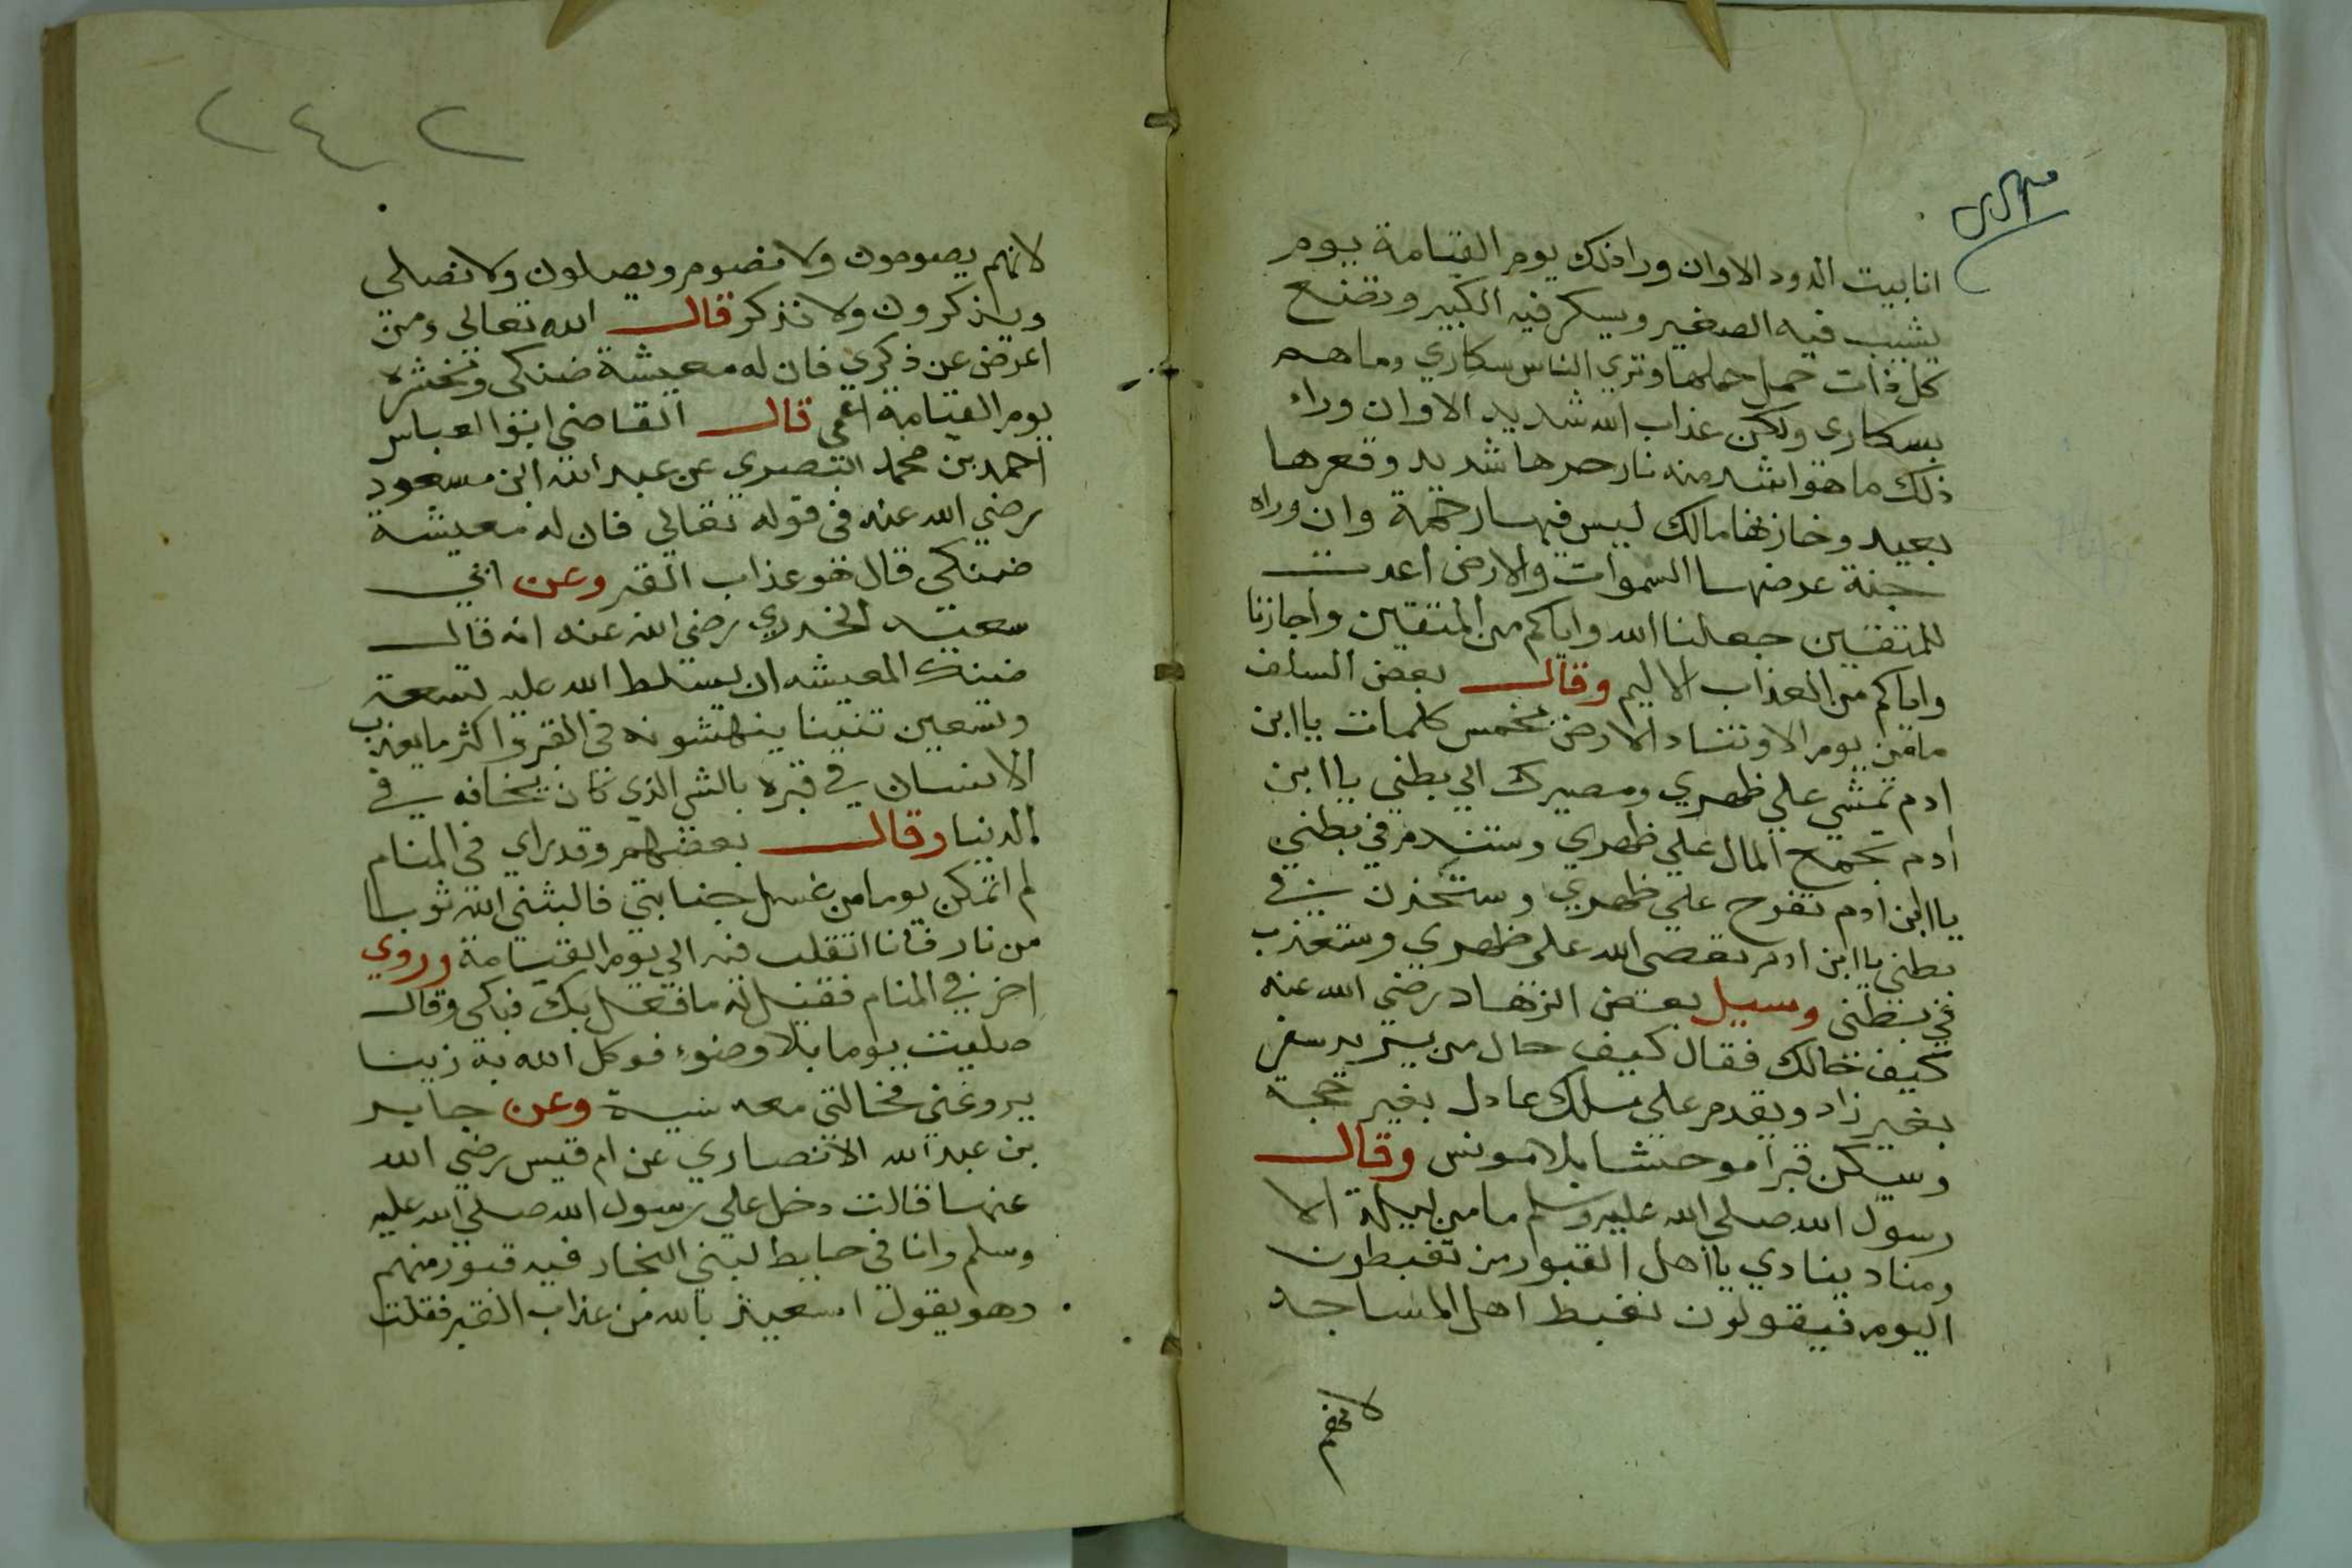 انا بيت الدود الا وان ورا ذلك يوم القيامة يوم
يشيب فيه الصغير ويسكر فيه الكبير وتضع
كل ذات حمل حملها وتري الناس سكاري وما هم
بسكارى ولكن عذاب الله شديد الا وان وراء
ذلك ما هو اشد منه نار حرها شديد وقعرها
بعيد وخازنها مالك ليس فيها رحمة وان وراه
جنة عرضها السموات والارض اعدت
للمتقين جعلنا الله واياكم من المتقين واجازنا
واياكم من العذاب الاليم وقال بعض السلف
ما من يوم الا وتناد الارض بخمس كلمات يا ابن
ادم تمشي علي ظهري ومصيرك الي بطني يا ابن
ادم تجمع المال علي ظهري وستندم في بطني
يا ابن ادم تفرح علي ظهري وستحزن في
بطني يا ابن ادم تعصى الله على ظهري وستعذب
في بطني وسيل بعض الزهاد رضي الله عنه
كيف حالك فقال كيف حال من يريد سفر
بغير زاد ويقدم على ملك عادل بغير حجة
وسكن قبرا موحشا بلا مونس وقال
رسول الله صلي الله عليه وسلم ما من ليلة الا
ومناد ينادي يا اهل القبور من تغبطون
اليوم فيقولون نغبط اهل المساجد
لانهم
٢٤٢
لانهم يصومون ولا نصوم ويصلون ولا نصلي
ويذكرون ولا نذكر قال الله تعالي ومن
اعرض عن ذكري فان له معيشة ضنكى ونحشره
يوم القيامة اعمي قال القاضي ابوا العباس
احمد بن محمد البصري عن عبد الله ابن مسعود
رضي الله عنه في قوله تعالي فان له معيشة
ضنكي قال هو عذاب القبر وعن ابي
سعيد الخدري رضي الله عنه انه قال
ضنك المعيشه ان يسلط الله عليه تسعة
وتسعين تنينا ينهشونه في القبر واكثر ما يعذب
الانسان في قبره بالشي الذي كان يخافه في
الدنيا وقال بعضهم وقد راي في المنام
لم اتمكن يوما من غسل جنابتي فالبثني الله ثوبا
من نار فانا اتقلب فيه الي يوم القيامة وروي
اخر في المنام فقيل له ما فعل بك فبكى وقال
صليت يوما بلا وضوء فوكل الله بي ذيبا
يروعني فحالتي معه سية وعن جابر
بن عبد الله الانصاري عن ام قيس رضي الله
عنها قالت دخل علي رسول الله صلي الله عليه
وسلم وانا في حايط لبني النجار فيه قبور منهم
وهو يقول استعيذ بالله من عذاب القبر فقلت